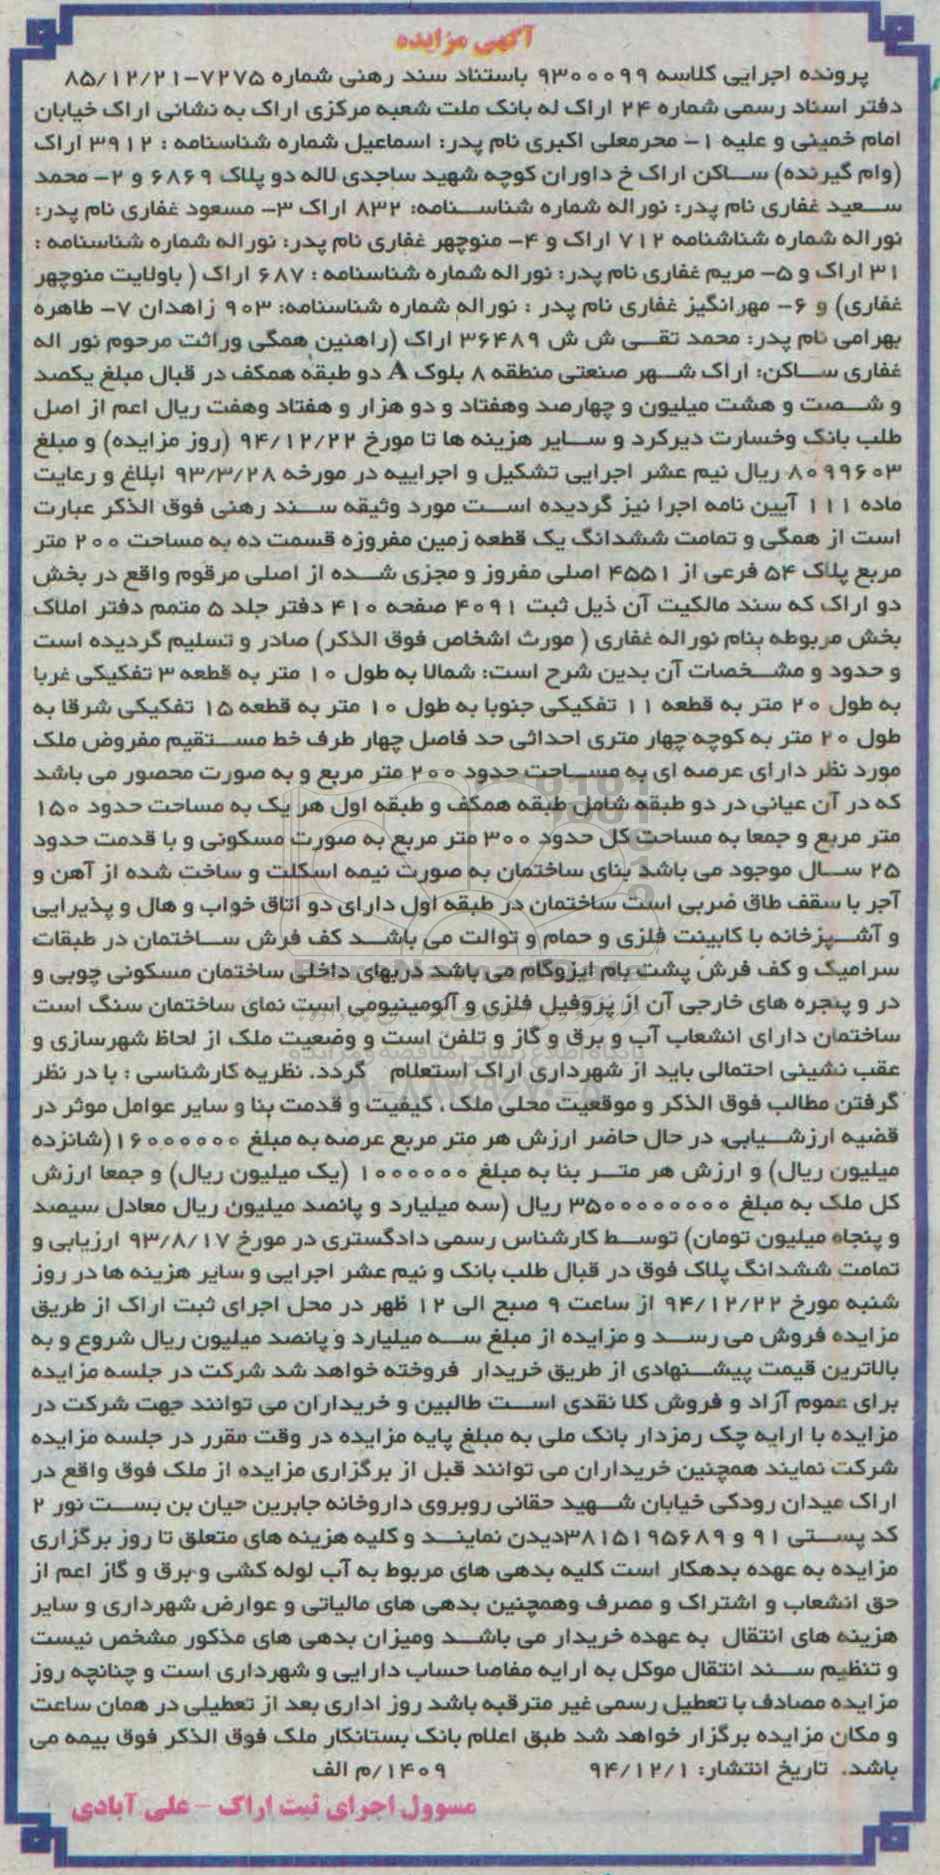 آگهی مزایده
پرونده اجرایی کلاسه ۹۳۰۰۰۹۹ باستناد سند رهنی شماره ۷۲۷۵-۸۵/۱۲/۲۱
دفتر اسناد رسمی شماره ۲۴ اراک له بانک ملت شعبه مرکزی اراک به نشانی اراک خیابان
امام خمینی و علیه ۱- محرمعلی اکبری نام پدر: اسماعیل شماره شناسنامه : ۳۹۱۲ اراک
(وام گیرنده) ساکن اراک خ داوران کوچه شهید ساجدی لاله دو پلاک ۶۸۶۹ و ۲- محمد
سعید غفاری نام پدر: نوراله شماره شناسنامه: ۸۳۲ اراک ۳- مسعود غفاری نام پدر:
نوراله شماره شناشنامه ۷۱۲ اراک و ۴- منوچهر غفاری نام پدر: نوراله شماره شناسنامه :
۳۱ اراک و ۵- مریم غفاری نام پدر: نوراله شماره شناسنامه : ۶۸۷ اراک ( باولایت منوچهر
غفاری) و ۶- مهرانگیز غفاری نام پدر : نوراله شماره شناسنامه: ۹۰۳ زاهدان ۷- طاهره
بهرامی نام پدر: محمد تقی ش ش ۳۶۴۸۹ اراک (راهنین همگی وراثت مرحوم نور اله
غفاری ساکن: اراک شهر صنعتی منطقه ۸ بلوک A دو طبقه همکف در قبال مبلغ یکصد
و شصت و هشت میلیون و چهارصد وهفتاد و دو هزار و هفتاد وهفت ریال اعم از اصل
طلب بانک وخسارت دیرکرد و سایر هزینه ها تا مورخ ۹۴/۱۲/۲۲ (روز مزایده) و مبلغ
۸۰۹۹۶۰۳ ریال نیم عشر اجرایی تشکیل و اجراییه در مورخه ۹۳/۳/۲۸ ابلاغ و رعایت
ماده ۱۱۱ آیین نامه اجرا نیز گردیده است مورد وثیقه سند رهنی فوق الذکر عبارت
است از همگی و تمامت ششدانگ یک قطعه زمین مفروزه قسمت ده به مساحت ۲۰۰ متر
مربع پلاک ۵۴ فرعی از ۴۵۵۱ اصلی مفروز و مجزی شده از اصلی مرقوم واقع در بخش
دو اراک که سند مالکیت آن ذیل ثبت ۴۰۹۱ صفحه ۴۱۰ دفتر جلد ۵ متمم دفتر املاک
بخش مربوطه بنام نوراله غفاری ( مورث اشخاص فوق الذکر) صادر و تسلیم گردیده است
و حدود و مشخصات آن بدین شرح است: شمالا به طول ۱۰ متر به قطعه ۳ تفکیکی غربا
به طول ۲۰ متر به قطعه ۱۱ تفکیکی جنوبا به طول ۱۰ متر به قطعه ۱۵ تفکیکی شرقا به
طول ۲۰ متر به کوچه چهار متری احداثی حد فاصل چهار طرف خط مستقیم مفروض ملک
مورد نظر دارای عرصه ای به مساحت حدود ۲۰۰ متر مربع و به صورت محصور می باشد
که در آن عیانی در دو طبقه شامل طبقه همکف و طبقه اول هر یک به مساحت حدود ۱۵۰
متر مربع و جمعا به مساحت کل حدود ۳۰۰ متر مربع به صورت مسکونی و با قدمت حدود
۲۵ سال موجود می باشد بنای ساختمان به صورت نیمه اسکلت و ساخت شده از آهن و
آجر با سقف طاق ضربی است ساختمان در طبقه اول دارای دو اتاق خواب و هال و پذیرایی
و آشپزخانه با کابینت فلزی و حمام و توالت می باشد کف فرش ساختمان در طبقات
سرامیک و کف فرش پشت بام ایزوگام می باشد دربهای داخلی ساختمان مسکونی چوبی و
در و پنجره های خارجی آن از پروفیل فلزی و آلومینیومی است نمای ساختمان سنگ است
ساختمان دارای انشعاب آب و برق و گاز و تلفن است و وضعیت ملک از لحاظ شهرسازی و
عقب نشینی احتمالی باید از شهرداری اراک استعلام گردد. نظریه کارشناسی : با در نظر
گرفتن مطالب فوق الذکر و موقعیت محلی ملک ، کیفیت و قدمت بنا و سایر عوامل موثر در
قضیه ارزشیابی، در حال حاضر ارزش هر متر مربع عرصه به مبلغ ۱۶۰۰۰۰۰۰ (شانزده
میلیون ریال) و ارزش هر متر بنا به مبلغ ۱۰۰۰۰۰۰ (یک میلیون ریال) و جمعا ارزش
کل ملک به مبلغ ۳۵۰۰۰۰۰۰۰۰ ریال (سه میلیارد و پانصد میلیون ریال معادل سیصد
و پنجاه میلیون تومان) توسط کارشناس رسمی دادگستری در مورخ ۹۳/۸/۱۷ ارزیابی و
تمامت ششدانگ پلاک فوق در قبال طلب بانک و نیم عشر اجرایی و سایر هزینه ها در روز
شنبه مورخ ۹۴/۱۲/۲۲ از ساعت ۹ صبح الی ۱۲ ظهر در محل اجرای ثبت اراک از طریق
مزایده فروش می رسد و مزایده از مبلغ سه میلیارد و پانصد میلیون ریال شروع و به
بالاترین قیمت پیشنهادی از طریق خریدار فروخته خواهد شد شرکت در جلسه مزایده
برای عموم آزاد و فروش کلا نقدی است طالبین و خریداران می توانند جهت شرکت در
مزایده با ارایه چک رمزدار بانک ملی به مبلغ پایه مزایده در وقت مقرر در جلسه مزایده
شرکت نمایند همچنین خریداران می توانند قبل از برگزاری مزایده از ملک فوق واقع در
اراک میدان رودکی خیابان شهید حقانی روبروی داروخانه جابربن حیان بن بست نور ۲
کد پستی ۹۱ و ۳۸۱۵۱۹۵۶۸۹دیدن نمایند و کلیه هزینه های متعلق تا روز برگزاری
مزایده به عهده بدهکار است کلیه بدهی های مربوط به آب لوله کشی و برق و گاز اعم از
حق انشعاب و اشتراک و مصرف وهمچنین بدهی های مالیاتی و عوارض شهرداری و سایر
هزینه های انتقال به عهده خریدار می باشد ومیزان بدهی های مذکور مشخص نیست
و تنظیم سند انتقال موکل به ارایه مفاصا حساب دارایی و شهرداری است و چنانچه روز
مزایده مصادف با تعطیل رسمی غیر مترقبه باشد روز اداری بعد از تعطیلی در همان ساعت
و مکان مزایده برگزار خواهد شد طبق اعلام بانک بستانکار ملک فوق الذکر فوق بیمه می
باشد. تاریخ انتشار: ۹۴/۱۲/۱ ۱۴۰۹/م الف
مسوول اجرای ثبت اراک - علی آبادی